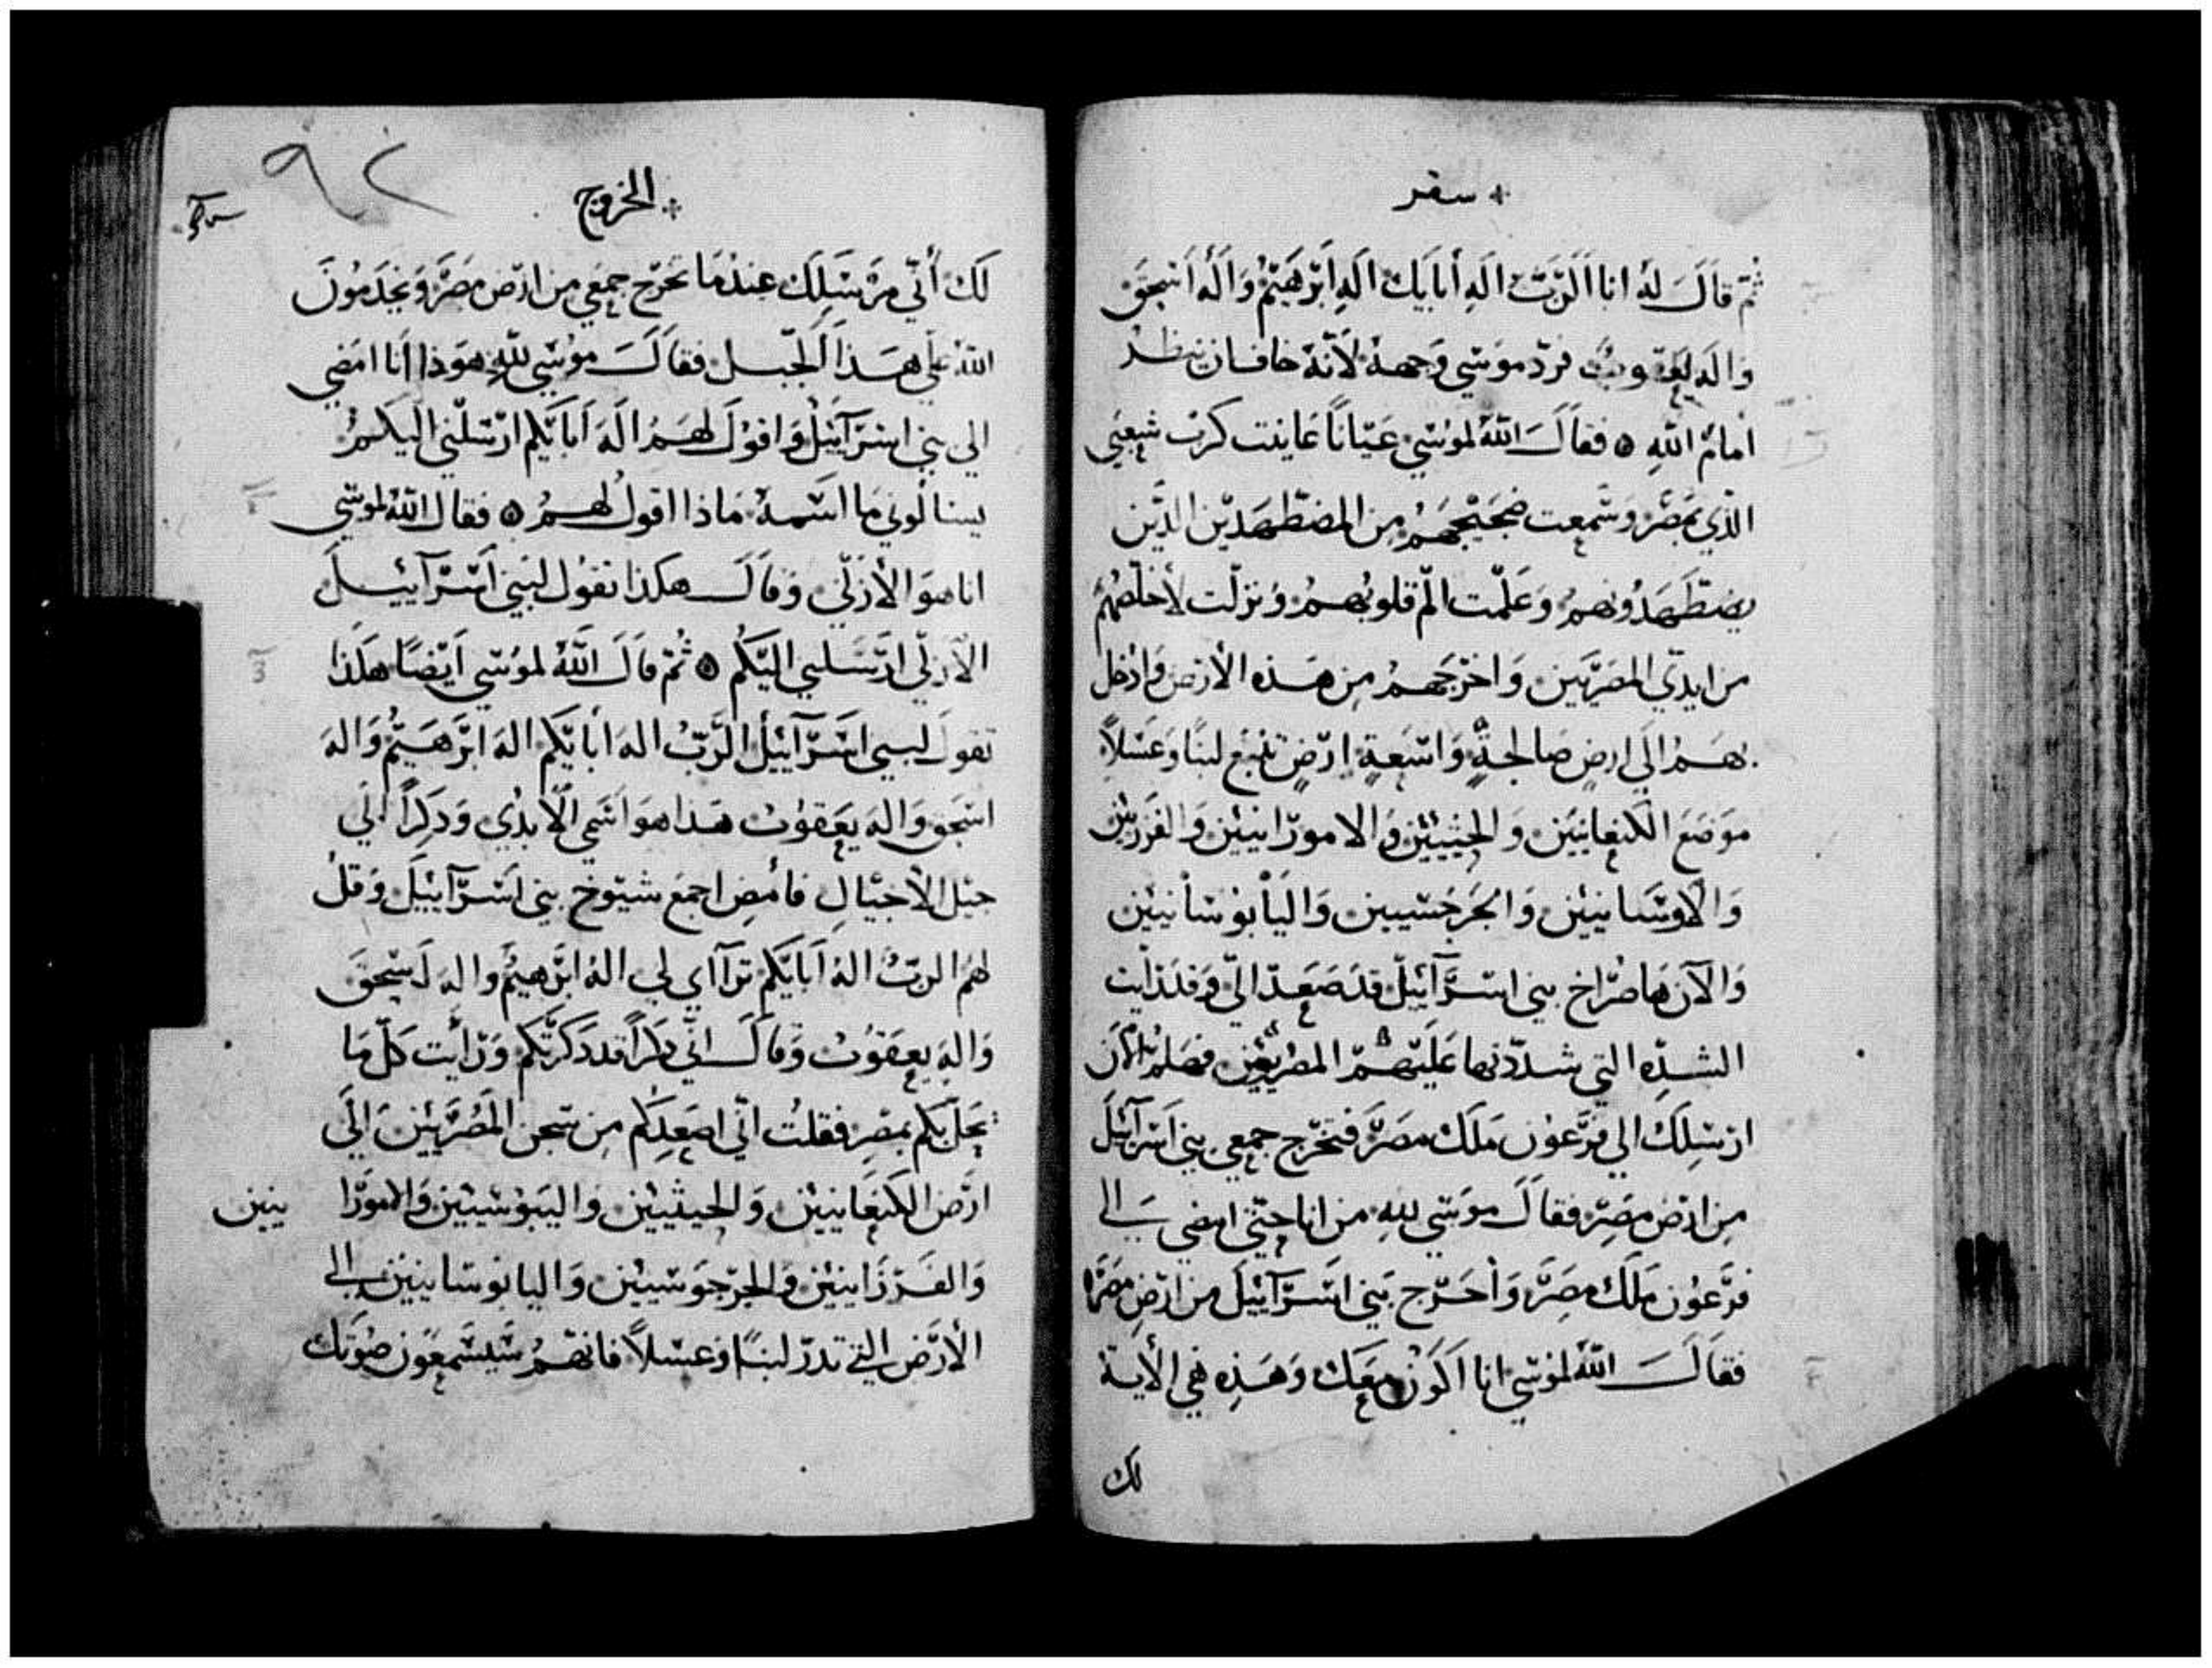 سفر
ثم قال له انا الرب اله أبايك اله ابرهيم واله اسحق
واله يعقوب فرد موسي وجهه لأنه خاف ان ينظر
امام الله ۞ فقال الله لموسي عيانا عاينت كرب شعبي
الذي بمصر وسمعت ضجيجهم من المضطهدين الذين
يضطهدونهم وعلمت الم قلوبهم ونزلت لأخلصهم
من ايدي المصريين واخرجهم من هذه الأرض وادخل
بهم الى ارض صالحة واسعة ارض تنبع لبنا وعسلاً
موضع الكنعانيين والحيثيين والاموراnيين والفرزيين
والاوسانيين والجرجسيين واليابوسانيين
والآن ها صراخ بني اسرآئيل قد صعد الي وقد رايت
الشده التي شددتها عليهم المصريين فهلم الآن
ارسلك الي فرعون ملك مصر فتخرج جمعي بني اسرآئيل
من ارض مصر فقال موسي لله من انا حتي امضي الى
فرعون ملك مصر وأخرج بني اسرآئيل من ارض مصر
فقال الله لموسي انا اكون معك وهذه هي الأية
لك
الخروج
٩٢
لك أني مرسلك عندما تخرج جمعي من ارض مصر ويخدمون
الله علي هذا الجبل فقال موسي لله هوذا انا امضي
الي بني اسرآئيل واقول لهم اله ابايكم ارسلني اليكم
يسالوني ما اسمه ماذا اقول لهم ۞ فقال الله لموسي
انا هو الأزلي وقال هكذا تقول لبني اسرآئيل
الأزلي ارسلني اليكم ۞ ثم قال الله لموسي ايضا هكذا
تقول لبني اسرآئيل الرب اله أبايكم اله ابرهيم واله
اسحق واله يعقوب هذا هو اسمي الأبدي وذكراً الي
جيل الأجيال فأمض اجمع شيوخ بني اسرآئيل وقل
لهم الرب اله ابايكم ترآاي لي اله ابرهيم واله اسحق
واله يعقوب وقال اني ذكراً قد ذكرتكم ورأيت كل ما
يحل بكم بمصر فقلت اني اصعدكم من سجن المصريين الى
ارض الكنعانيين والحيثيين واليبوسيين والامورا نيين
والفرزانيين والجرجوسيين واليابوسانيين الى
الأرض التي تدر لبنًا وعسلاً فانهم سيسمعون صوتك